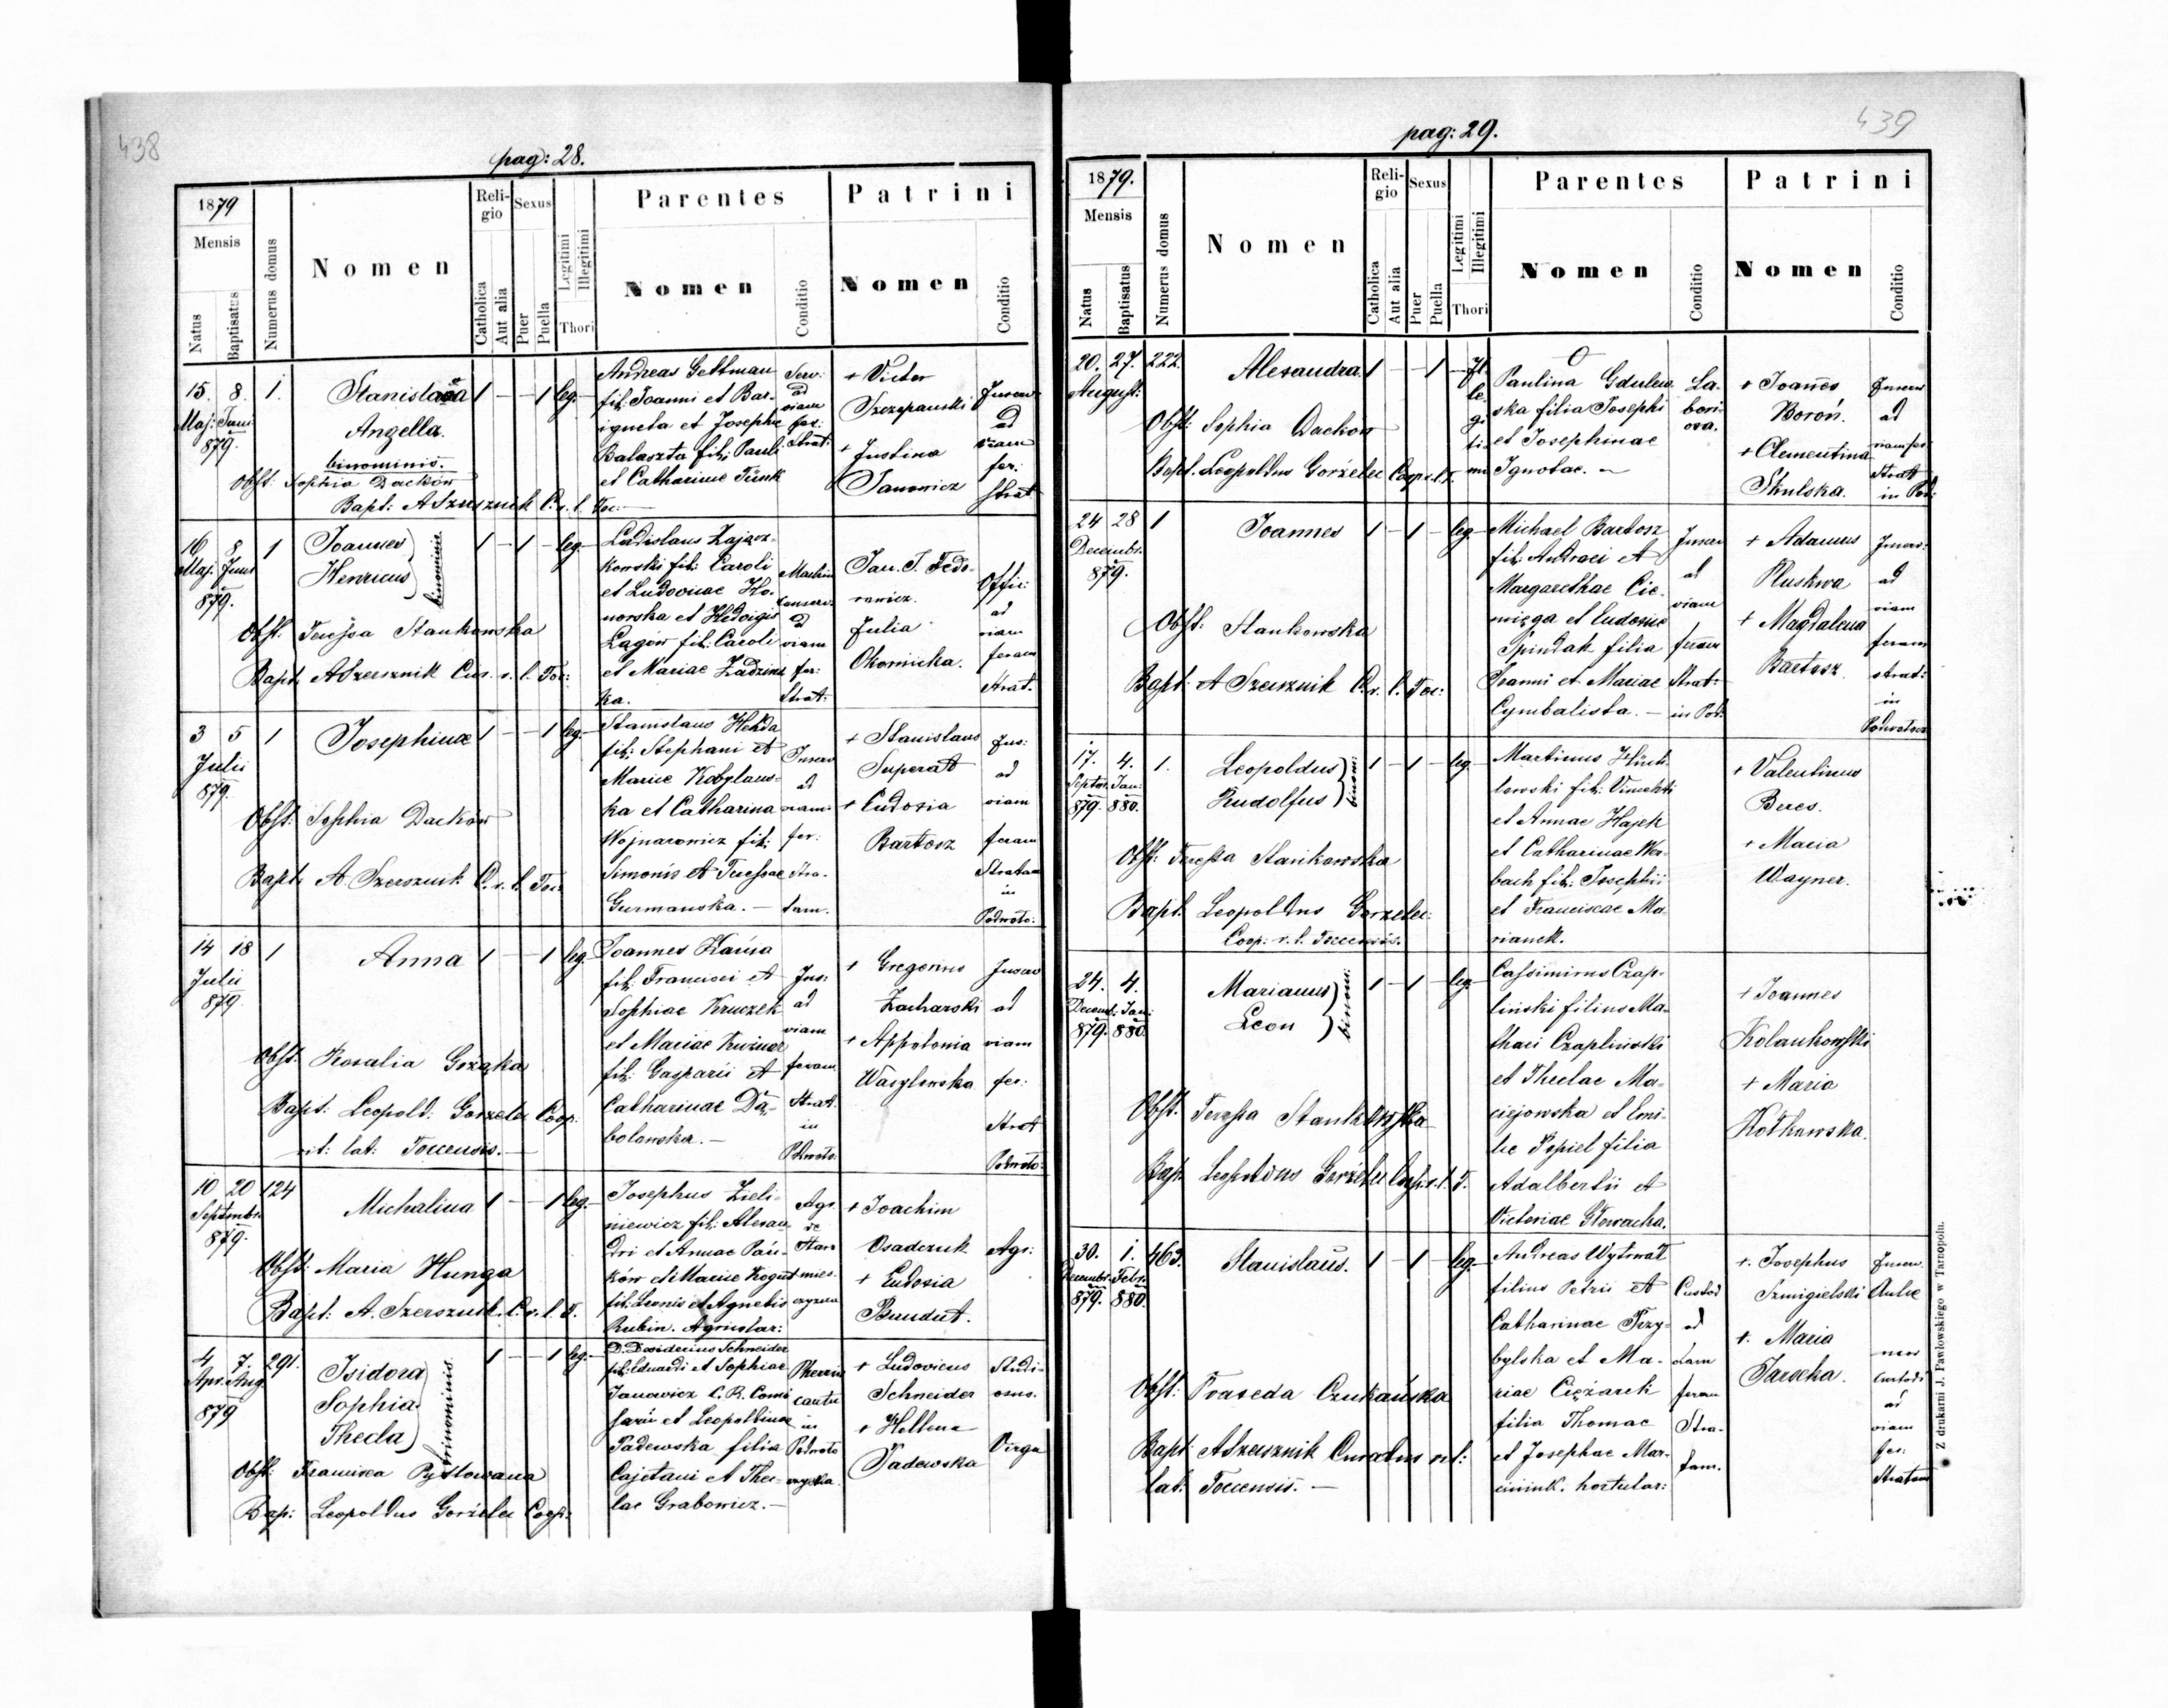 438
pag: 28.
1879
Mensis
Natus
Baptisatus
Numerus domus
Nomen
Religio
Catholica
Aut alia
Sexus
Puer
Puella
Legitimi
Illegitimi
Thori
Parentes
Nomen
Conditio
Patrini
Nomen
Conditio
15. 8. 1.
Maj: Juni
879.
Stanislava
Angella.
binominis.
1 — — 1 leg.
Obst: Sophia Dackow
Bapt: A Szersznik C. r. l. Toc:
Andreas Gettman
fil: Joanni et Bar-
et Josephe
Balaszta fil: Pauli
et Catharinae
Serv:
ad
viam
fer:
Strat:
+ Victor
Szczepanski
+ Justina
Janowicz
ad
viam
fer:
Strat
16 8 1
Maj. Juni
879.
Joannes
Henricus
binominis
1 — 1 — leg.
Obst. Teressa Stankowska
Bapt. A Szersznik Cur. r. l. Toc:
Ladislaus Zającz-
kowski fil: Caroli
et Ludovicae Ho-
norska et Hedvigis
Lagow fil: Caroli
et Mariae
ka.
ad
viam
fer:
Strat:
Jan. T. Fedo-
rowicz.
Julia
Offic:
ad
viam
feram
Strat.
3 5 1
Julii
879.
Josephina
1 — — 1 leg.
Obst: Sophia Dackow
Bapt. A. Szersznik C. r. l. Toc:
Stanislaus
fil: Stephani et
Mariae Kobylans-
ka et Catharina
Wojnarowicz fil:
Simonis et Teressae
Germanska. —
ad
viam
fer:
Stra-
tam.
+ Stanislaus
Superat
+ Eudoxia
Bartosz
ad
viam
feram
Stratam
in
Podwolo:
14 18 1
Julii
879.
Anna
1 — — 1 leg.
Obst. Rosalia Grząka
Bapt. Leopold. Gorzelec Coop.
rit: lat: Toccensis. —
Joannes
fil: Francisci et
Sophiae Kruczek
et Mariae
fil: Gasparis et
Catharinae Da-
bolewska. —
ad
viam
feram
Strat.
in
Podwolo:
+ Gregorius
Zacharski
+ Appolonia
Wasylewska
ad
viam
fer:
Strat
Podwolo:
10 20 124
Septembr.
879.
Michalina
1 — — 1 leg.
Obst: Maria Hunga
Bapt: A. Szersznik C. r. l. T.
Josephus Zieli-
niewicz fil: Alexan-
dri et Annae Pań-
ków et Mariae Kogut
fil: Leonis et Agnetis
Rubin. Agricolar:
Agr.
+ Joachim
Osadczuk
+ Eudoxia
Bandut.
Agr:
4 7. 291.
Apr. Aug.
879
Isidora
Sophia
Thecla
trinominis.
1 — — 1 leg.
Obst: Francisca Pytlowana
Bap: Leopoldus Gorzelec Coop:
D. Desiderius Schneider
fil: Eduardi et Sophiae
Janowicz C. R. Comi-
sarii et Leopoldinae
Padewska filia
Cajetani et Thec-
lae Grabowicz. —
in
Podwolo
+ Ludovicus
Schneider
+ Hellena
Padewska
Studi-
osus.
Virgo
439
pag: 29.
1879.
Mensis
Natus
Baptisatus
Numerus domus
Nomen
Religio
Catholica
Aut alia
Sexus
Puer
Puella
Legitimi
Illegitimi
Thori
Parentes
Nomen
Conditio
Patrini
Nomen
Conditio
20. 27. 222.
August:
Alexandra.
1 — — 1 — Il-
le-
gi-
ti-
mi
Obst: Sophia Dackow
Bapt. Leopoldus Gorzelec Coop. r. l. T.
O
Paulina Gdulew-
ska filia Josephi
et Josephinae
Ignotae. —
La-
bori-
osa.
+ Joannes
Boroń.
+ Clementina
Skulska.
ad
viam fer:
Strat
in Pod:
24 28 1
Decembr.
879.
Joannes
1 — 1 — leg.
Obst: Stankowska
Bapt: A Szersznik C. r. l. Toc:
Michael Bartosz
fil: Andreae et
Margarethae Cie-
mięga et Ludovic
Spindak filia
Joanni et Mariae
Cymbalista. —
ad
viam
feram
Strat:
in Pod:
+ Adamus
Pluskwa
+ Magdalena
Bartosz
ad
viam
feram
strat:
in
17. 4. 1.
Septbr. Jan:
879. 880.
Leopoldus
Rudolfus
binom:
1 — 1 — leg.
Obst: Teressa Stankowska
Bapt. Leopoldus Gorzelec
Coop: r. l. Toccensis.
Martinus
lowski fil: Vincenti
et Annae Hajek
et Catharinae Wer-
bach fil: Josephii
et Franciscae Ma-
rianek.
+ Valentinus
Beres.
+ Maria
Wayner.
24. 4.
Decemb: Jan:
879. 880.
Marianus
Leon
binom:
1 — 1 — leg.
Obst. Teressa Stankowska
Bap. Leopoldus Gorzelec Coop. r. l. T.
Cassimirus Czap-
linski filius Ma-
thaei Czaplinski
et Theclae Ma-
ciejowska et Emi-
lie Popiel filia
Adalbertii et
Victoriae Glowacka.
+ Joannes
Kolankowski
+ Maria
Kotkowska.
30. 1. 463.
Decembr. Febr.
879. 880.
Stanislaus.
1 — 1 — leg.
Obst: Praxeda Czukańska
Bapt. A Szersznik Curatus r. l:
lat: Toccensis. —
Andreas Wytrwał
filius Petri et
Catharinae Przy-
bylska et Ma-
riae Ciężarek
filia Thomae
et Josephae Mar-
ciniuk. hortular:
Custod
ad
viam
feram
Stra-
tam.
+ Josephus
Szmigielski
+ Maria
Jarocka.
ad
viam
fer:
Stratam
Z drukarni J. Pawłowskiego w Tarnopolu.